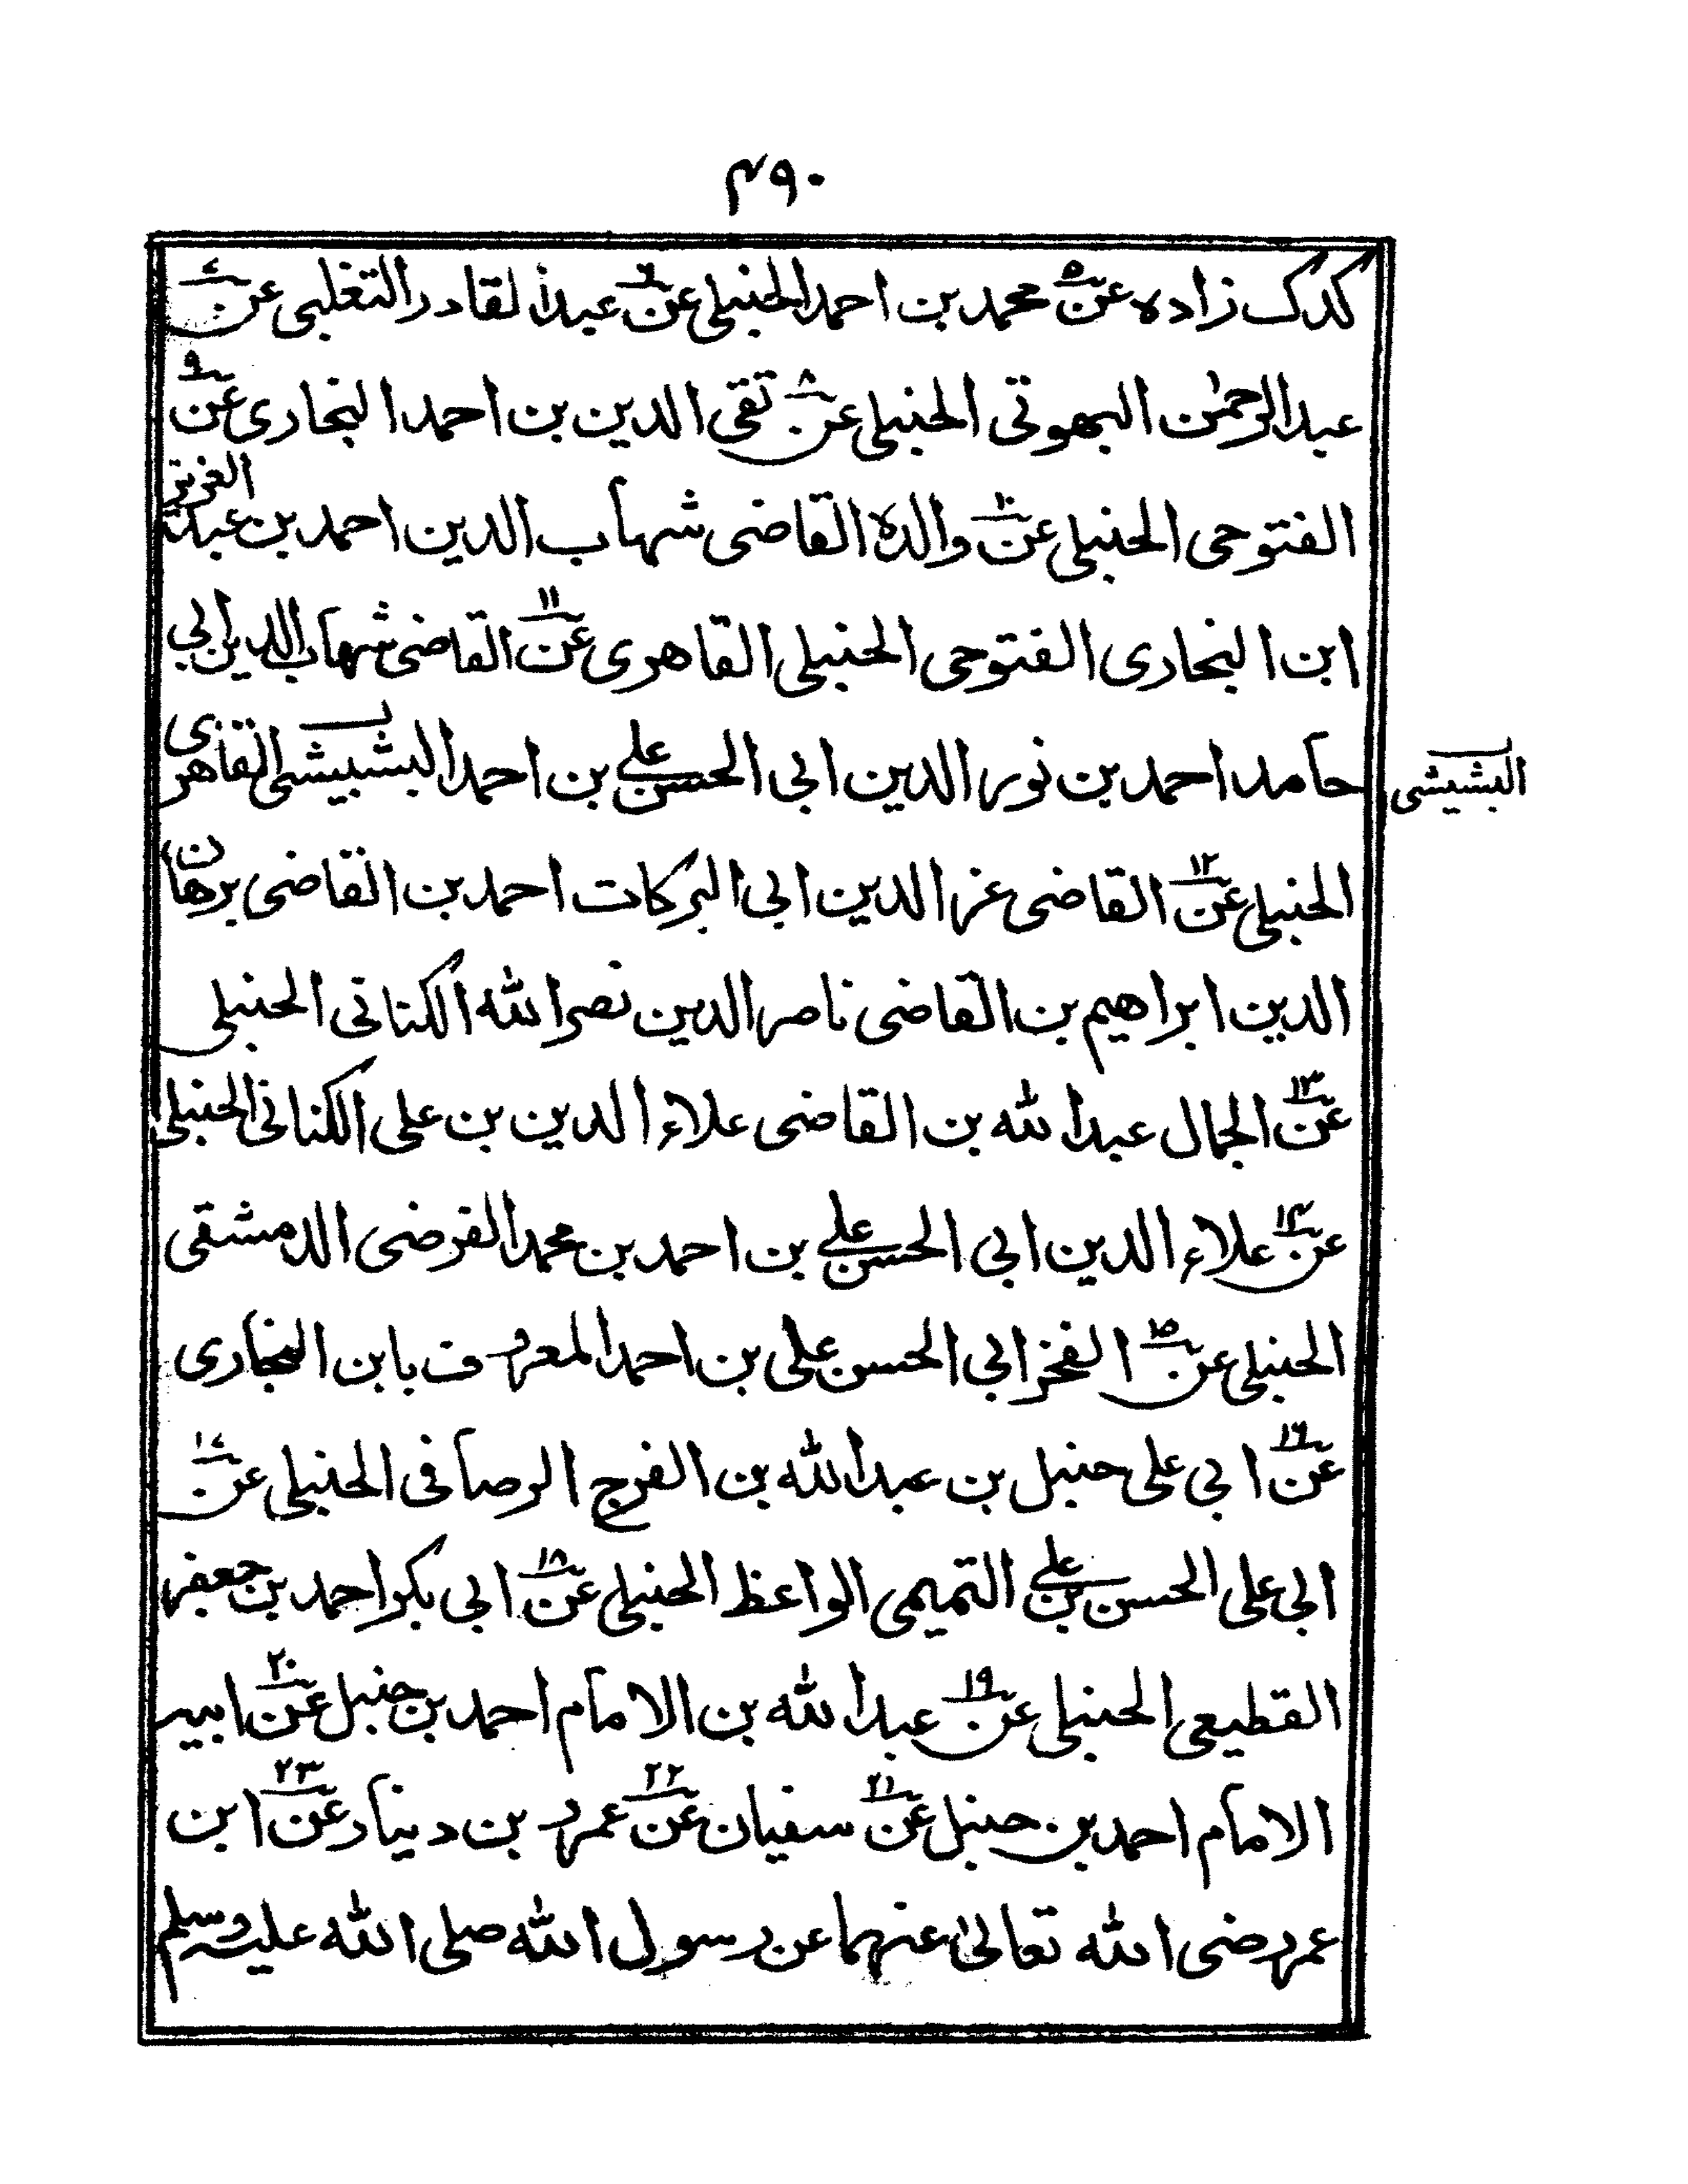 ۴۹۰
کدک زاده عن۵ محمد بن احمد الحنبلی عن۶ عبد القادر التغلبی عن۷
عبد الرحمٰن البهوتی الحنبلی عن۸ تقی الدین بن احمد النجاری عن۹
الفتوحی الحنبلی عن۱۰ والده القاضی شهاب الدین احمد بن عبد العزیز
ابن النجاری الفتوحی الحنبلی القاهری عن۱۱ القاضی شهاب الدین ابی
حامد احمد بن نور الدین ابی الحسن علی بن احمد البشبیشی القاهری
البشیشی
الحنبلی عن۱۲ القاضی عز الدین ابی البرکات احمد بن القاضی برهان
الدین ابراهیم بن القاضی ناصر الدین نصر الله الکنانی الحنبلی
عن۱۳ الجمال عبد الله بن القاضی علاء الدین بن علی الکنانی الحنبلی
عن۱۴ علاء الدین ابی الحسن علی بن احمد بن محمد الفرضی الدمشقی
الحنبلی عن۱۵ الفخر ابی الحسن علی بن احمد المعروف بابن البخاری
عن۱۶ ابی علی حنبل بن عبد الله بن الفرج الرصافی الحنبلی عن۱۷
ابی علی الحسن بن علی التمیمی الواعظ الحنبلی عن۱۸ ابی بکر احمد بن جعفر
القطیعی الحنبلی عن۱۹ عبد الله بن الامام احمد بن حنبل عن۲۰ ابیہ
الامام احمد بن حنبل عن۲۱ سفیان عن۲۲ عمرو بن دینار عن۲۳ ابن
عمر رضی الله تعالیٰ عنهما عن رسول الله صلی الله علیه وسلم